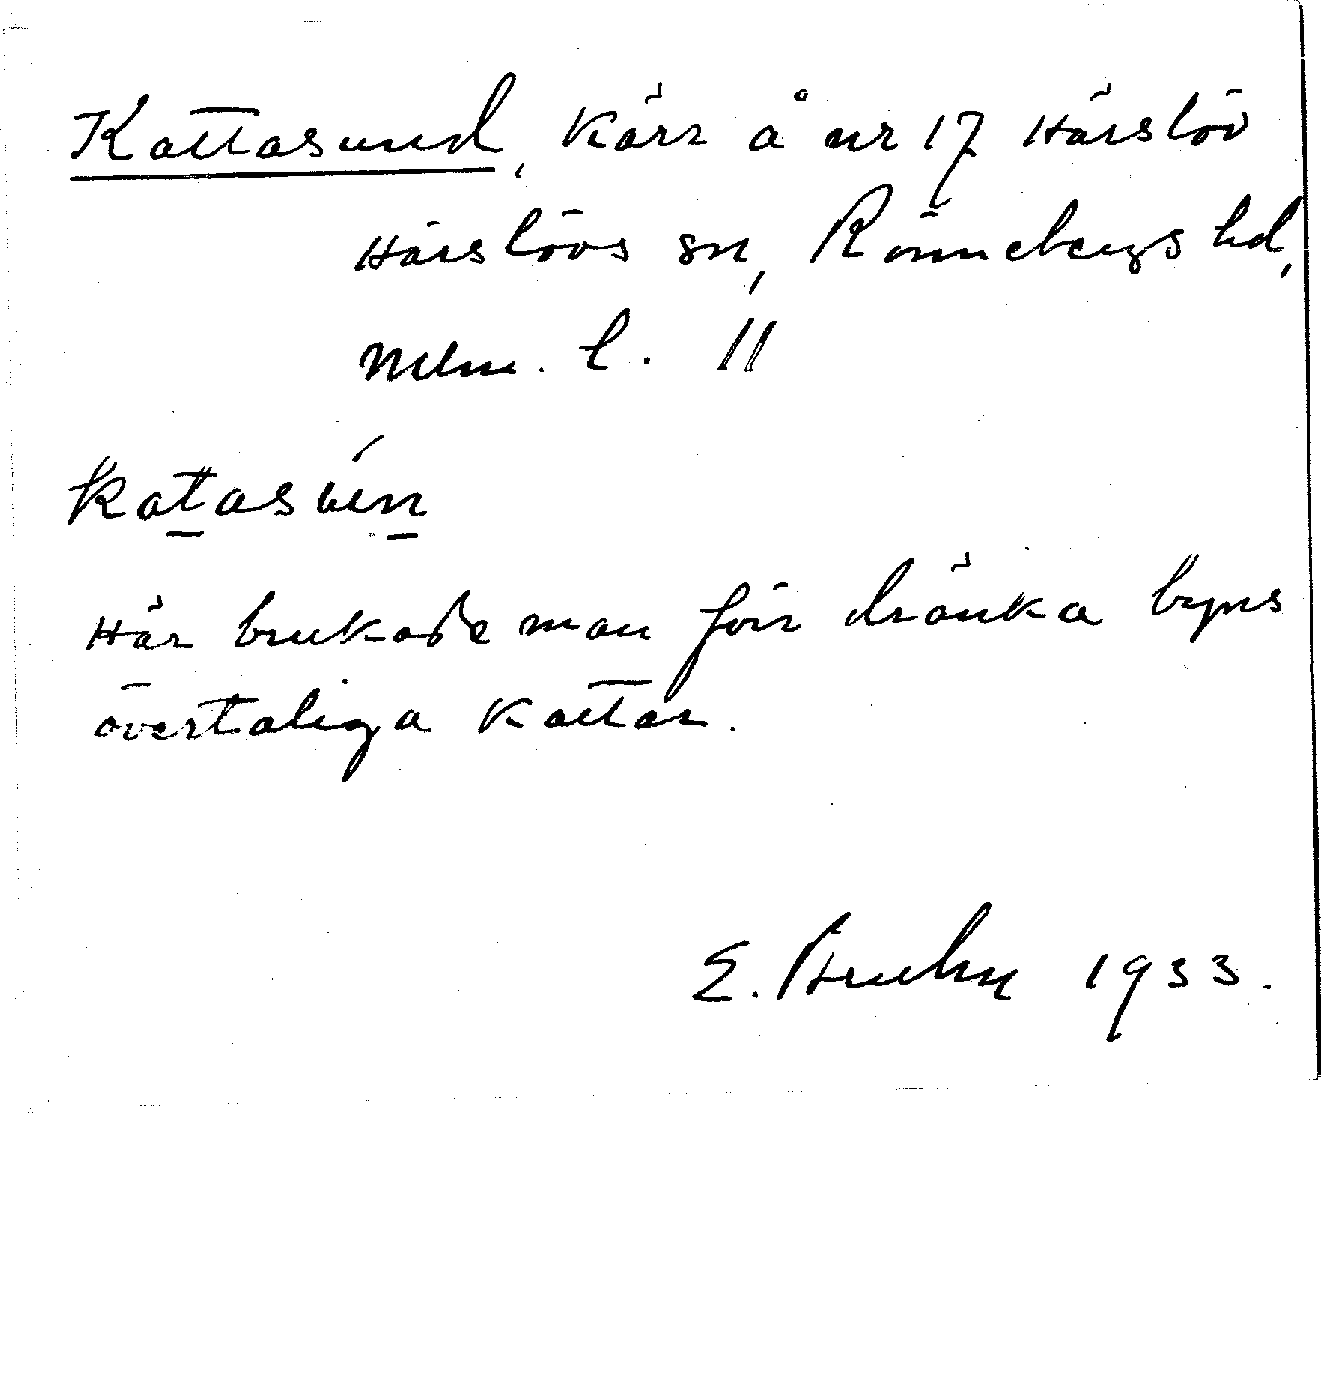 Kattasund, kärr å nr 17 Härslöv
Härslövs sn, Rönnebergs hd,
Mlm. l. 11
Här brukade man förr dränka byns
övertaliga kattar.
E. 1933.